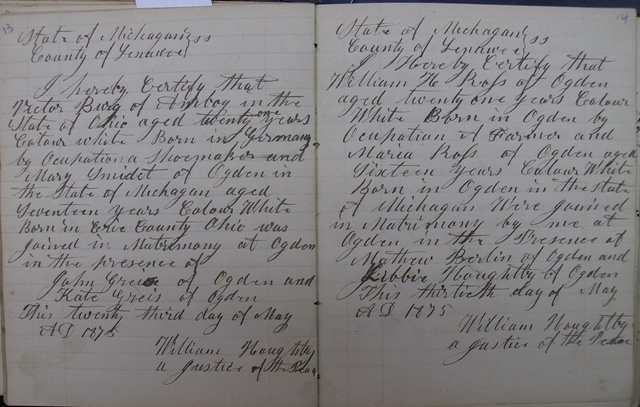 13
State of Michagan } ss
County of Lenawee
I hereby Certify that
Victor Burg of Amboy in the
State of Ohio aged twenty one years
Colour white Born in Germany
by Ocupation a Shoemaker and
Mary Smidet of Ogden in
the State of Michagan aged
Seventeen years Colour White
Born in Erie County Ohio was
Joined in Matrimony at Ogden
in the presence of
John Greis of Ogden and
Kate Greis of Ogden
This twenty third day of May
AD 1875
William Houghtby
a Justice of the Peace
14
State of Michagan } ss
County of Lenawee
I Hereby Certify that
William H Ross of Ogden
aged twenty one years Colour
White Born in Ogden by
Ocupation A Farmer and
Maria Ross of Ogden aged
Sixteen years Colour White
Born in Ogden in the state
of Michagan Were Joinied
in Matrimony by me at
Ogden in the Presence of
Mathew Berlin of Ogden and
Libbie Houghtby of Ogden
This thirtieth day of May
AD 1875
William Houghtby
a Justice of the Peace